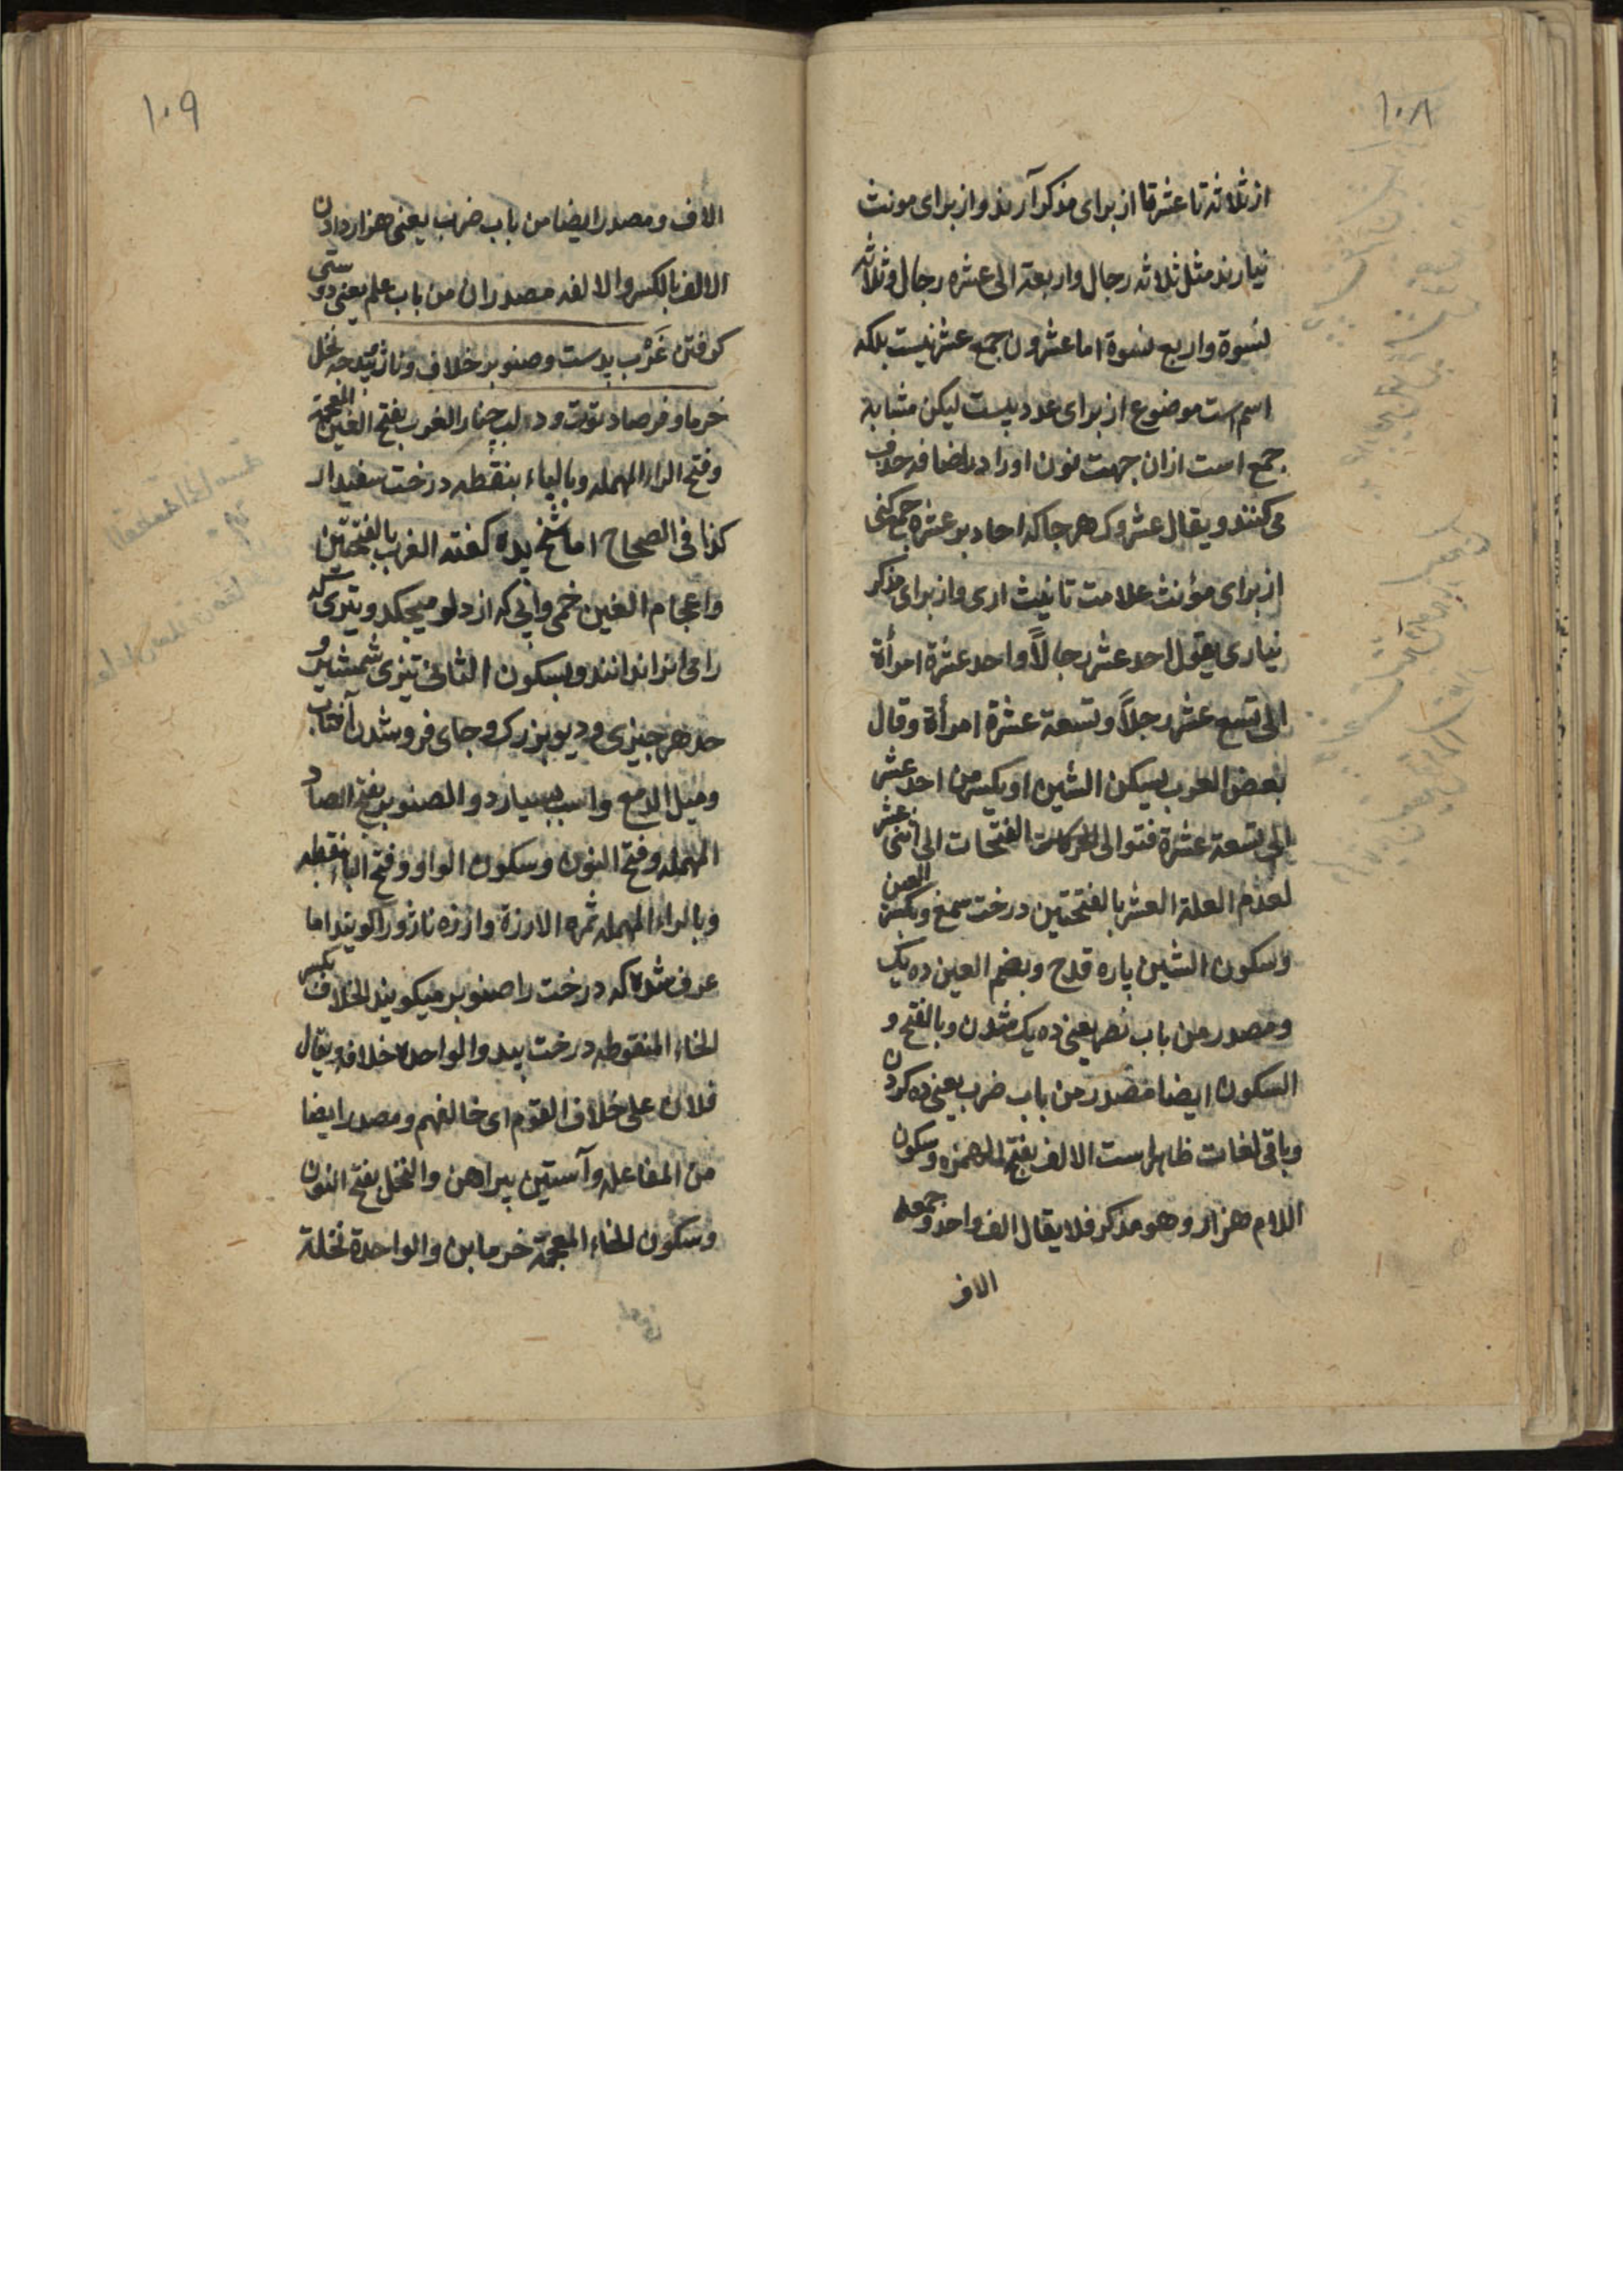 ۱۰۸
از ثلاثه تا عشرة تا از برای مذکر آرند و از برای مونث
نیارند مثل ثلاثه رجال و اربعة الی عشره رجال و ثلاثه
نسوة و اربع نسوة اما عشرون جمع عشر نیست بلکه
اسم است موضوع از برای عدد بیست لیکن مشابه
جمع است ازان جهت نون اورا در اضافه حذف
می کنند و یقال عشروک هر جا که احاد بو عشره جمع کنی
از برای مؤنث علامت تانیث اری و از برای مذکر
نیاری یقول احد عشر رجالاً واحد عشرة امرأة
الی تسع عشر رجلاً وتسعة عشرة امرأة وقال
بعض العرب بسکن الشین او بکسر من احد عشر
الی تسعة عشرة فتوالی الحرکات الفتحات الی اثنی عشر
لعدم العلة العشر بالفتحتین درخت سمغ و بکسر العین
وسکون الشین پاره قدح وبضم العین ده یک
ومصدر من باب نصر یعنی ده یک شدن وبالفتح و
السکون ایضا مصدر من باب ضرب یعنی ده کردن
وباقی لغات ظاهر است الالف بفتح الهمزه وسکون
اللام هزار وهو مذکر فلا یقال الف واحد وجمعه
الاف
۱۰۹
الاف ومصدر ایضا من باب ضرب یعنی هزار دادن
الالف بالکسر والالفه مصدران من باب علم یعنی دوستی
کرفتن غَرَب بدست وصنوبر خلاف وناژ حه نخل
خرما وفرصاد توت ودلب چنار الغرب بفتح الغین المعجمة
وفتح الراء المهمله وبالباء بنقطه درخت سفیدار
کذا فی الصحاح اما شیخ یده کفته الغرب بالفتحتین
واعجام الغین خمی وآبی که از دلو میچکد و تیری که
رامی انرا نداند وبسکون الثانی تیزی شمشیر و
حد هر چیزی ودیو بزرک وجای فروشدن آفتاب
ومیل الدمع واسب بسیار دو والصنوبر بفتح الصاد
المهمله وفتح النون وسکون الواو وفتح الباء بنقطه
وبالراء المهمله ثمره الارزة وارزه ناژو را کویند اما
عرف شده که درخت را صنوبر میکویند الخلاف بکسر
الخاء المنقوطه درخت بید والواحدة خلافه ویقال
فلان علی خلاف القوم ای خالفهم ومصدر ایضا
من المفاعله وآستین پیراهن والنخل بفتح النون
وسکون الخاء المعجمة خرما بن والواحدة نخلة